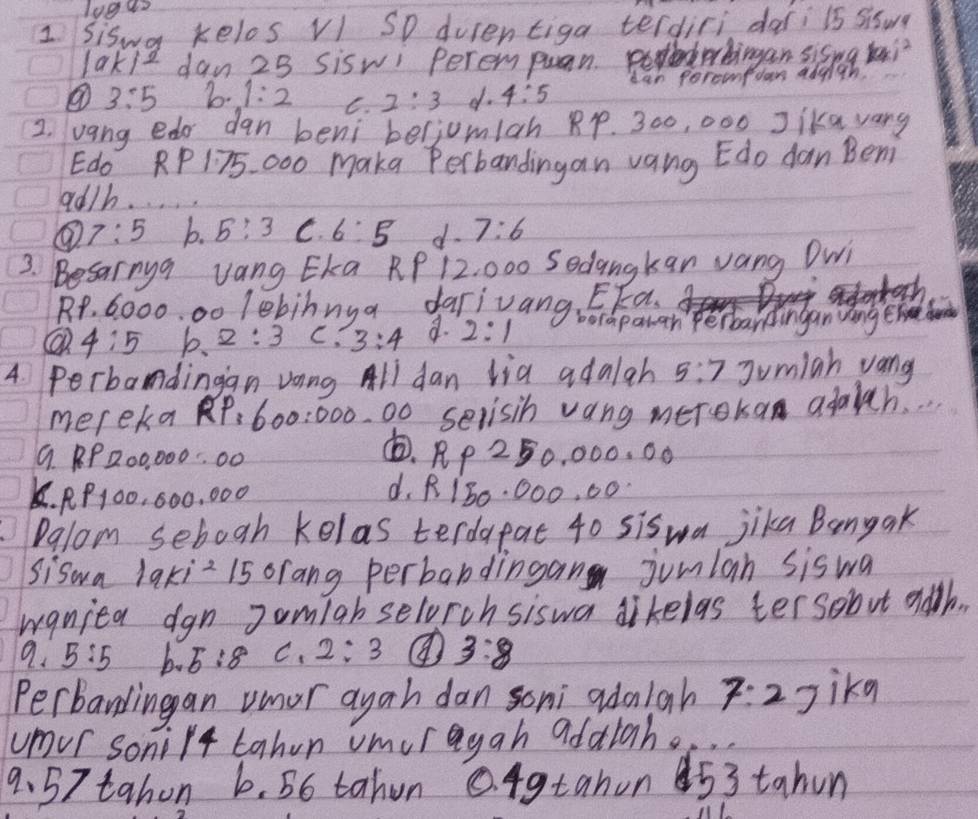 Tugas
1 Siswa kelos VI SD durentiga terdiri dari 15 siswa
laki² dan 25 siswi Perempuan. siswa laki²
dan perempuan adalah....
a 3:5 b. 1:2 c. 2:3 d. 4:5
2. vang edo dan beni berjumlah RP. 300,000 Jika vang
Edo RP 175.000 Maka Perbandingan vang Edo dan Beni
adlh.....
a 7:5 b. 5:3 c. 6:5 d. 7:6
3. Besarnya vang Eka RP 12.000 Sedangkan vang Dwi
RP. 6000.00 lebihnya dari vang Eka.
berapakah Perbandingan vang
a. 4:5 b. 2:3 c. 3:4 d. 2:1
4. Perbamdingan vang Ali dan lia adalah 5:7 Jumlah vang
mereka RP. 600.000.00 selisih vang merekan adalah....
a. RP 200,000.00 b. Rp 250.000.00
c. RP 100.600.000 d. R 150.000.00
Dalam seboah kelas terdapat 40 siswa jika Banyak
siswa laki² 15 orang perbandingan jumlah siswa
wanita dgn Jumlah selurch siswa dikelas tersobut adlh..
a. 5:5 b. 5:8 c. 2:3 d 3:8
Perbandingan umur ayah dan soni adalah 7:2 Jika
umur soni 14 tahun umur ayah adalah....
a. 57 tahun b. 56 tahun c. 49 tahun d 53 tahun